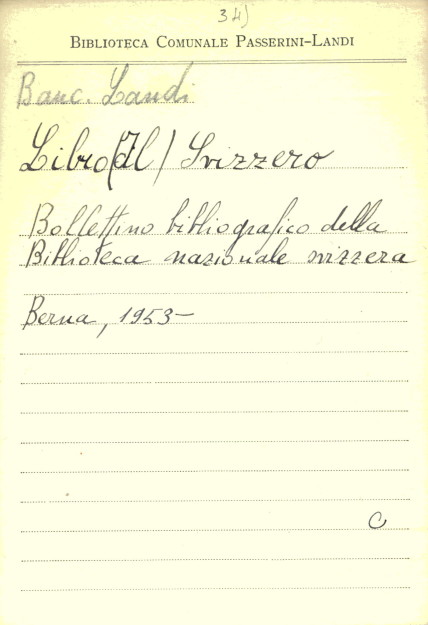 34)
BIBLIOTECA COMUNALE PASSERINI-LANDI
Banc. Landi
Libro (Il) Svizzero
Bollettino bibliografico della
Biblioteca nazionale svizzera
Berna, 1953-
C